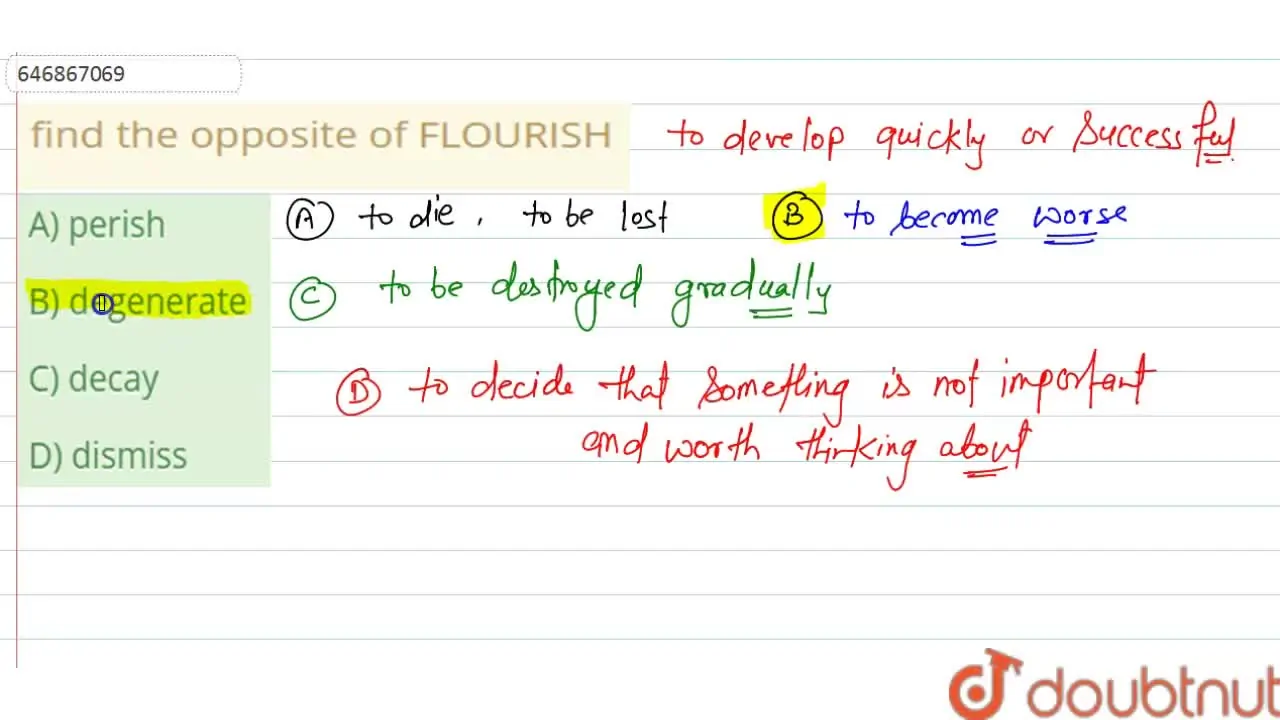 646867069
find the opposite of FLOURISH to develop quickly or successful.
A) perish (A) to die, to be lost (B) to become worse
B) degenerate (C) to be destroyed gradually
C) decay (D) to decide that something is not important
and worth thinking about
D) dismiss
doubtnut